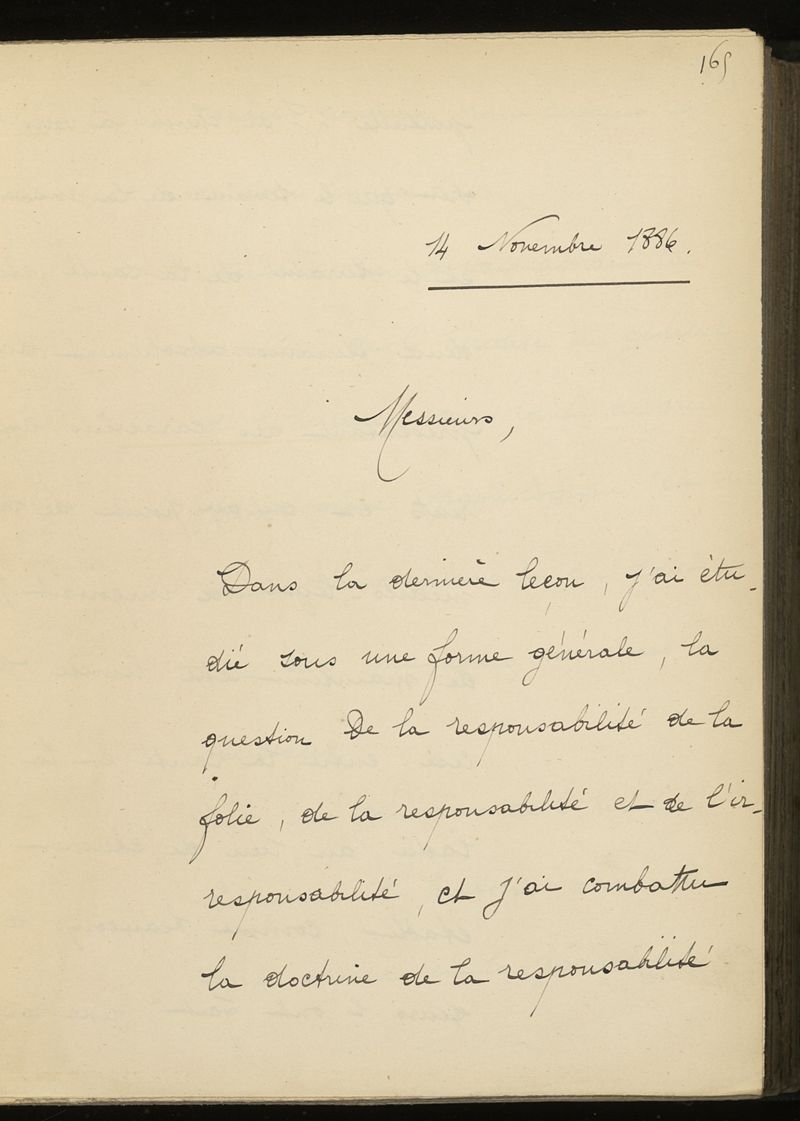 165
14 Novembre 1886.
Messieurs,
Dans la dernière leçon, j'ai étu-
dié sous une forme générale, la
question De la responsabilité de la
folie, de la responsabilité et de l'ir-
responsabilité, et j'ai combattu
la doctrine de la responsabilité